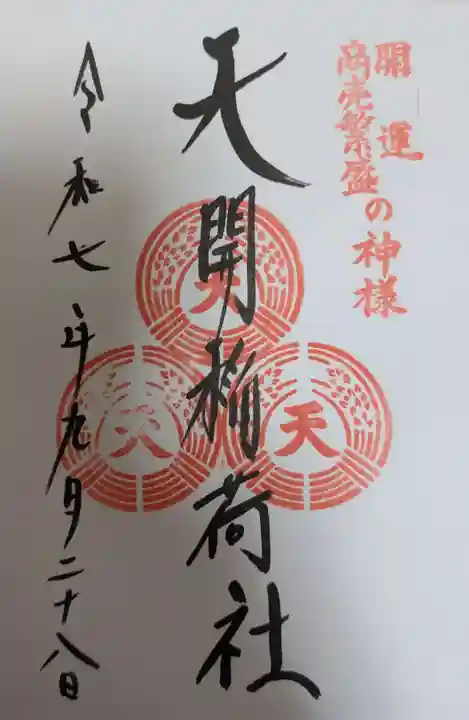 開運
商売繁盛の神様
天開稲荷社
天
天
天
令和七年九月二十八日